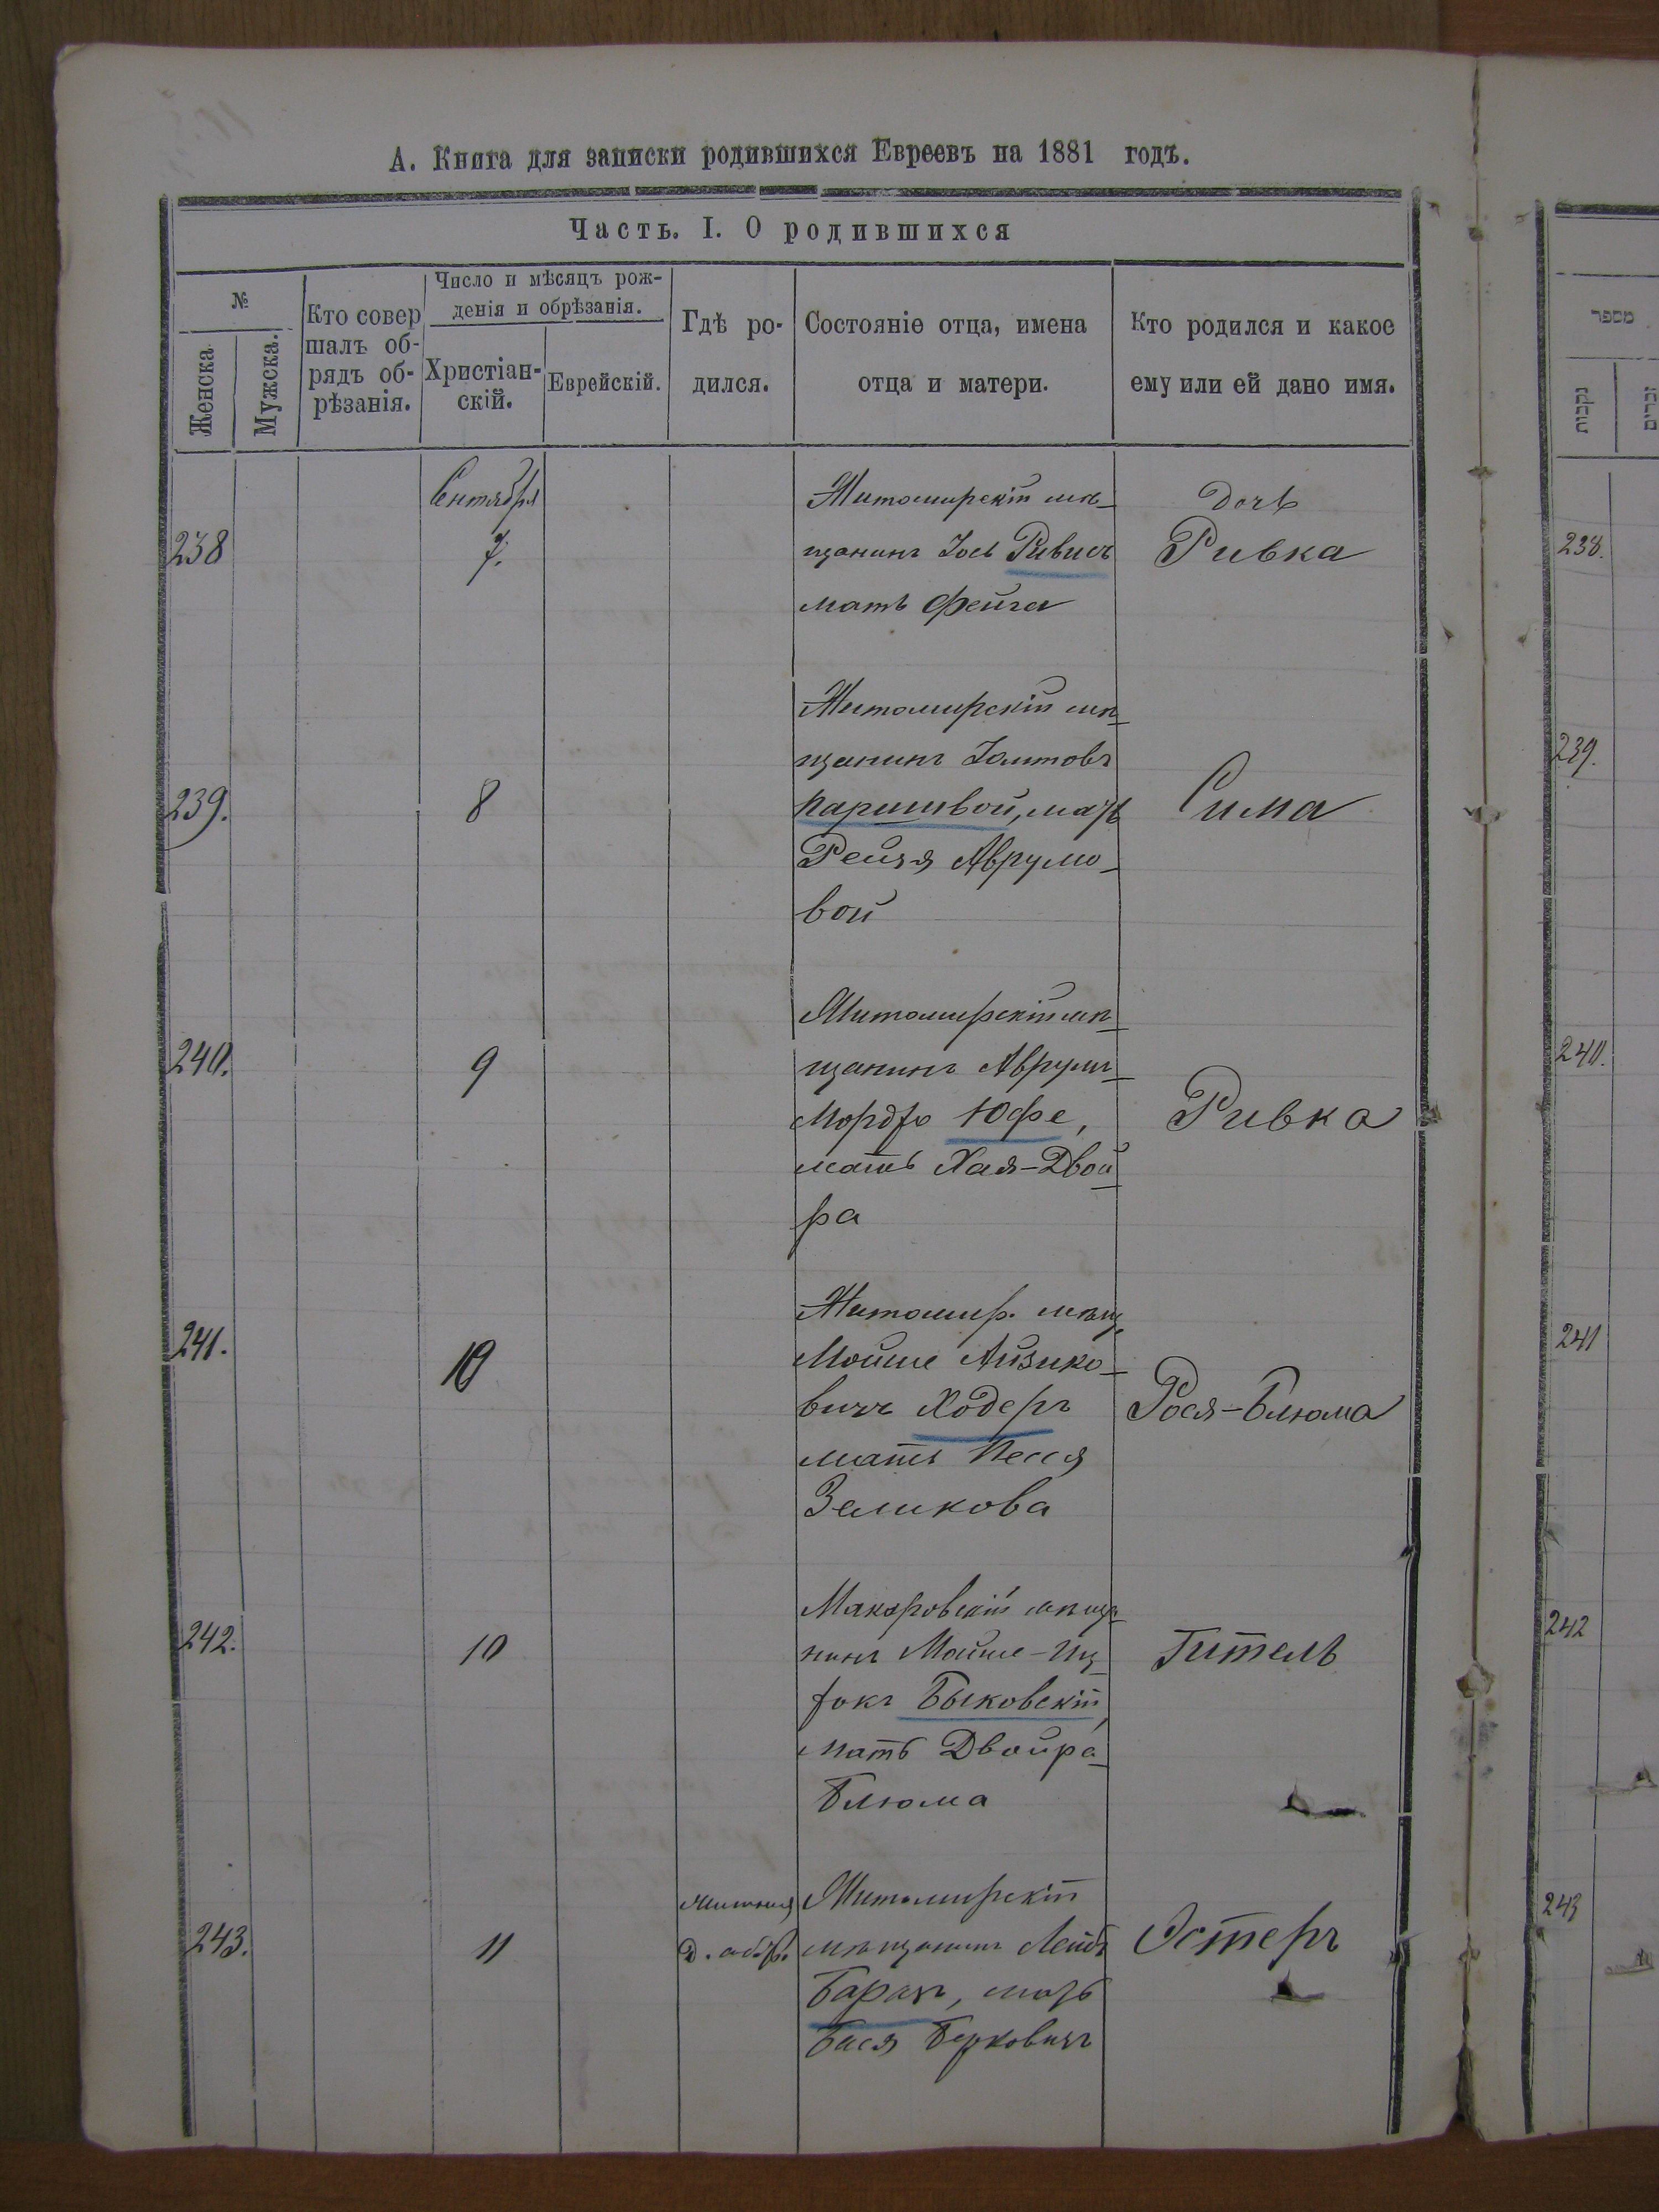 А. Книга для записки родившихся Евреевъ на 1881 годъ.
Часть. I. О родившихся
№
Женска
Мужска.
Кто совер
шалъ об-
рядъ об-
рѣзанія.
Число и мѣсяцъ рож-
денія и обрѣзанія.
Христіан-
скій.
Еврейскій.
Гдѣ ро-
дился.
Состояніе отца, имена
отца и матери.
Кто родился и какое
ему или ей дано имя.
238
Сентября
7.
Житомирскій мѣ-
щанинъ Іось Ривисъ
мать Фейга
Дочь
Ривка
239.
8
Житомирскій мѣ-
щанинъ
мать
Рейзя Аврумо-
вой
Сима
240.
9
Житомирскій мѣ-
щанинъ Аврумъ-
Мордко Юфе,
мать Хая-Двой
ра
Ривка
241.
10
Житомир. мѣщ.
Мойше Айзико-
вичъ Ходеръ
мать Песся
Зеликова
Рося-Блюма
242.
10
Макаровскій мѣща-
нинъ Мойше-Иц-
кокъ Быковскій,
мать Двойра-
Блюма
Гитель
243.
11
Житомирскій
мѣщанинъ Лейб
мать
Бася Берковичъ
Эстеръ
מספר
נקבות
זכרים
238.
239.
240.
241
242
243